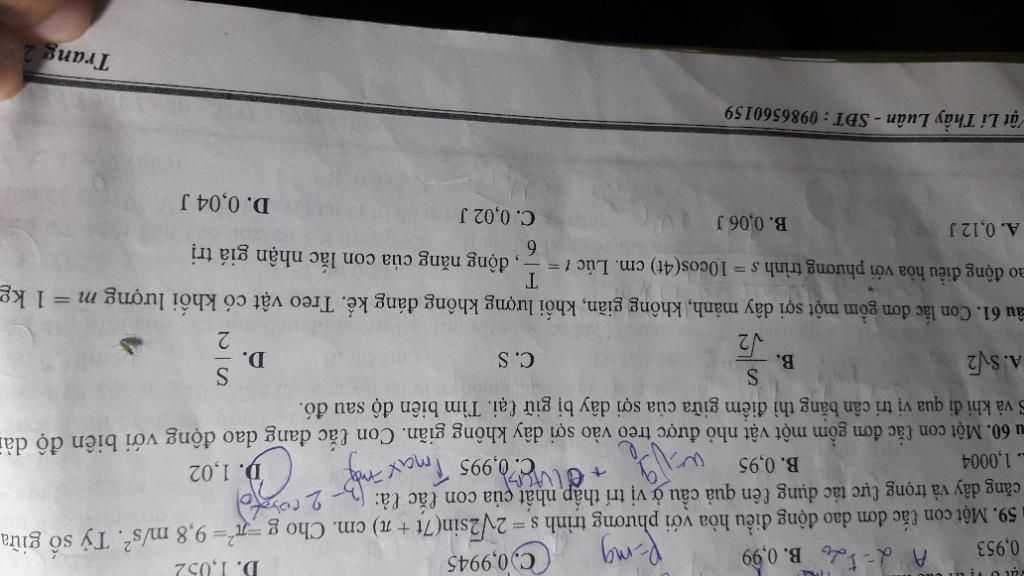 0,953 B. 0,99 C. 0,9945 D. 1,052
59. Một con lắc đơn dao động điều hòa với phương trình s = 2√2sin(7t + π) cm. Cho g =π²= 9,8 m/s². Tỷ số giữa
căng dây và trọng lực tác dụng lên quả cầu ở vị trí thấp nhất của con lắc là:
1,0004 B. 0,95 C. 0,995 D. 1,02
60. Một con lắc đơn gồm một vật nhỏ được treo vào sợi dây không giãn. Con lắc đang dao động với biên độ dài
S và khi đi qua vị trí cân bằng thì điểm giữa của sợi dây bị giữ lại. Tìm biên độ sau đó.
A. S√2 B. S/√2 C. S D. S/2
âu 61. Con lắc đơn gồm một sợi dây mảnh, không giãn, khối lượng không đáng kể. Treo vật có khối lượng m = 1 kg
ao động điều hòa với phương trình s = 10cos(4t) cm. Lúc t = T/6, động năng của con lắc nhận giá trị
A. 0,12 J B. 0,06 J C. 0,02 J D. 0,04 J
Vật Lí Thầy Luân - SĐT : 0986560159
Trang 2